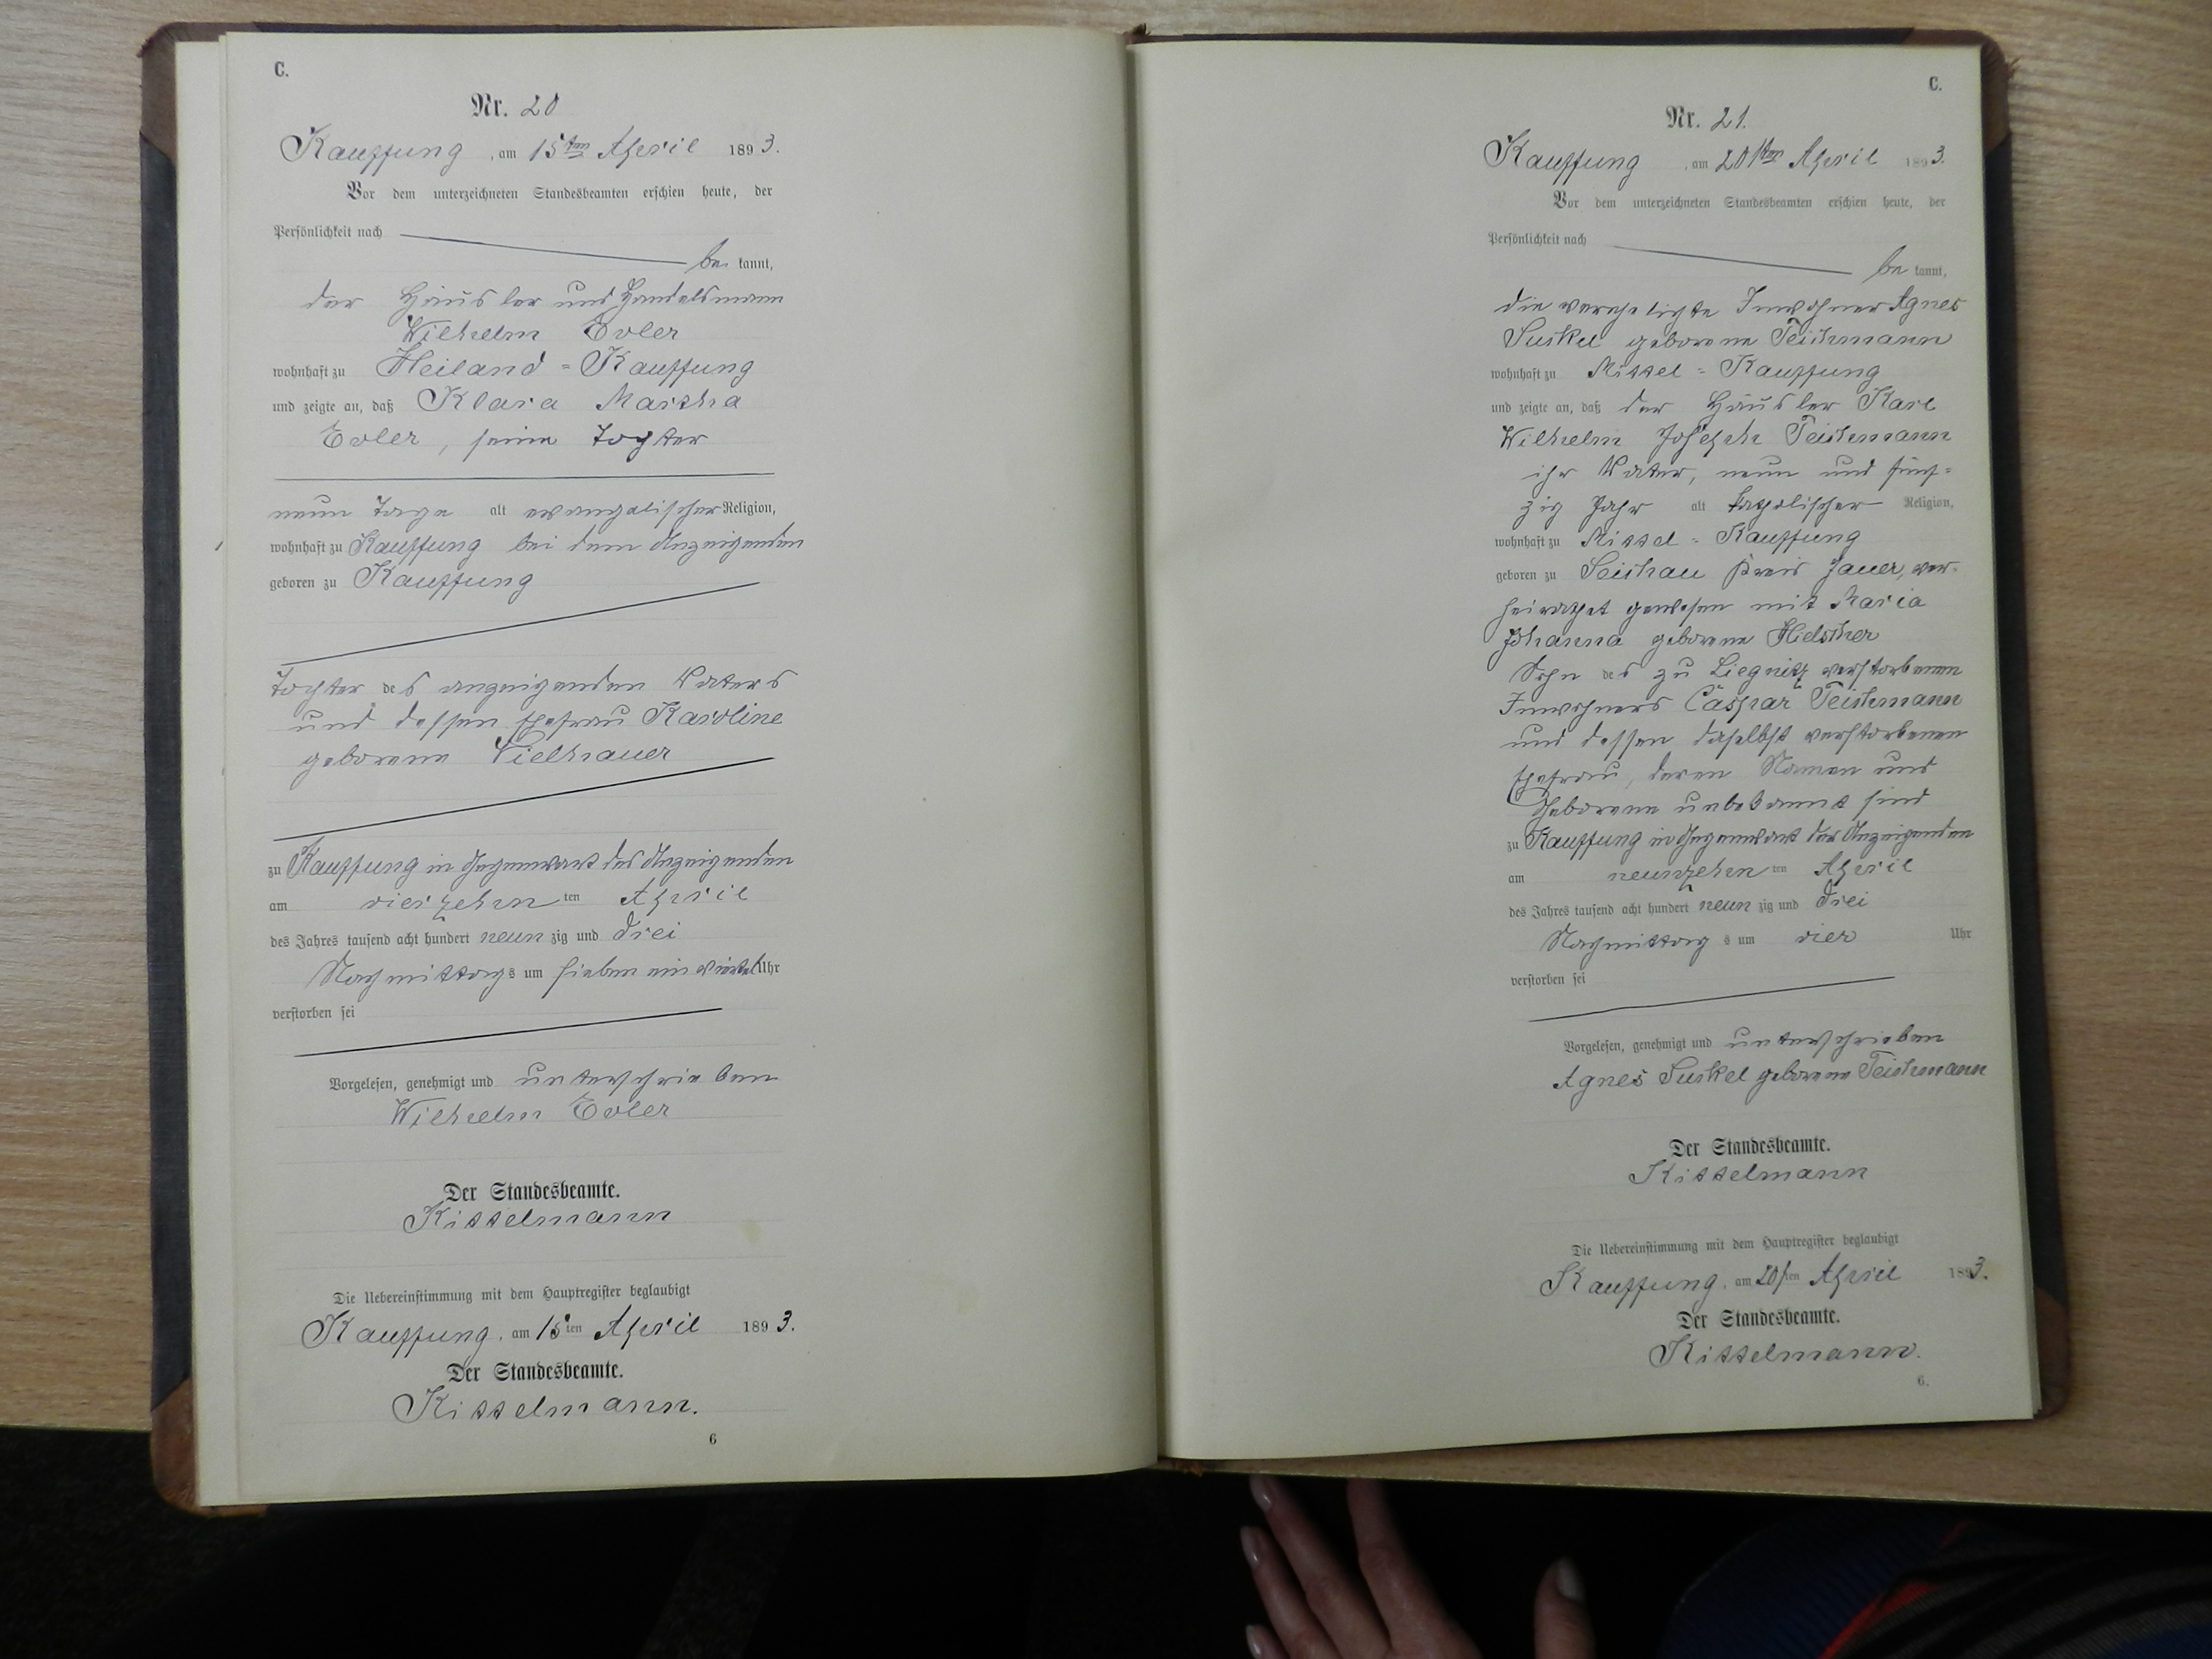 C.
Nr. 20
Kauffung, am 15ten April 1893.
Vor dem unterzeichneten Standesbeamten erschien heute, der
Persönlichkeit nach
be kannt,
der Häusler und Handelsmann
Wilhelm Evler
wohnhaft zu Heiland = Kauffung
und zeigte an, daß Klara Martha
Evler, seine Tochter
neun Tage alt evangelischer Religion,
wohnhaft zu Kauffung bei dem Anzeigenden
geboren zu Kauffung
Tochter des anzeigenden Vaters
und dessen Ehefrau Karoline
geborene Vielhauer
zu Kauffung in Gegenwart des Anzeigenden
am vierzehn ten April
des Jahres tausend acht hundert neun zig und drei
Nachmittag s um sieben ein viertel Uhr
verstorben sei
Vorgelesen, genehmigt und unterschrieben
Wilhelm Evler
Der Standesbeamte.
Kittelmann
Die Uebereinstimmung mit dem Hauptregister beglaubigt
Kauffung, am 15ten April 1893.
Der Standesbeamte.
Kittelmann.
6
C.
Nr. 21.
Kauffung, am 20ten April 1893.
Vor dem unterzeichneten Standesbeamten erschien heute, der
Persönlichkeit nach
be kannt,
die verehelichte Inwohner Agnes
Suckel geborene Teichmann
wohnhaft zu Mittel = Kauffung
und zeigte an, daß der Häusler Karl
Wilhelm Joseph Teichmann
ihr Vater, neun und fünf=
zig Jahr alt katholischer Religion,
wohnhaft zu Mittel = Kauffung
geboren zu Seichau Kreis Jauer, ver=
heirathet gewesen mit Maria
Johanna geborene Hielscher
Sohn des zu Liegnitz verstorbenen
Inwohners Caspar Teichmann
und dessen daselbst verstorbenen
Ehefrau, deren Namen und
Geborene unbekannt sind
zu Kauffung in Gegenwart der Anzeigenden
am neunzehn ten April
des Jahres tausend acht hundert neun zig und drei
Nachmittag s um vier Uhr
verstorben sei
Vorgelesen, genehmigt und unterschrieben
Agnes Suckel geborene Teichmann
Der Standesbeamte.
Kittelmann
Die Uebereinstimmung mit dem Hauptregister beglaubigt
Kauffung, am 20ten April 1893.
Der Standesbeamte.
Kittelmann.
6.